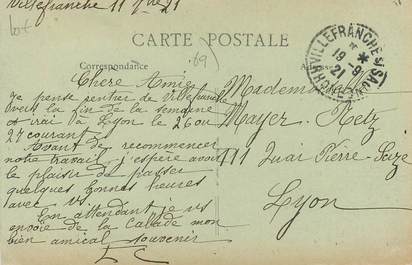 Villefranche 11 9bre 21
CARTE POSTALE
Correspondance
(69)
Chere Amie
Je pense rentrer de Villefranche
vers la fin de la semaine
et irai à Lyon le 26 ou
27 courant
Avant de recommencer
notre travail j'espère avoir
le plaisir de passer
quelques bonnes heures
avec vs.
En attendant je vs
envoie de la Calade mon
bien amical souvenir
Mademoiselle
Mayer Metz
111 Quai Pierre-Scize
Lyon
VILLEFRANCHE S/SAONE
RHONE
18 -9
21